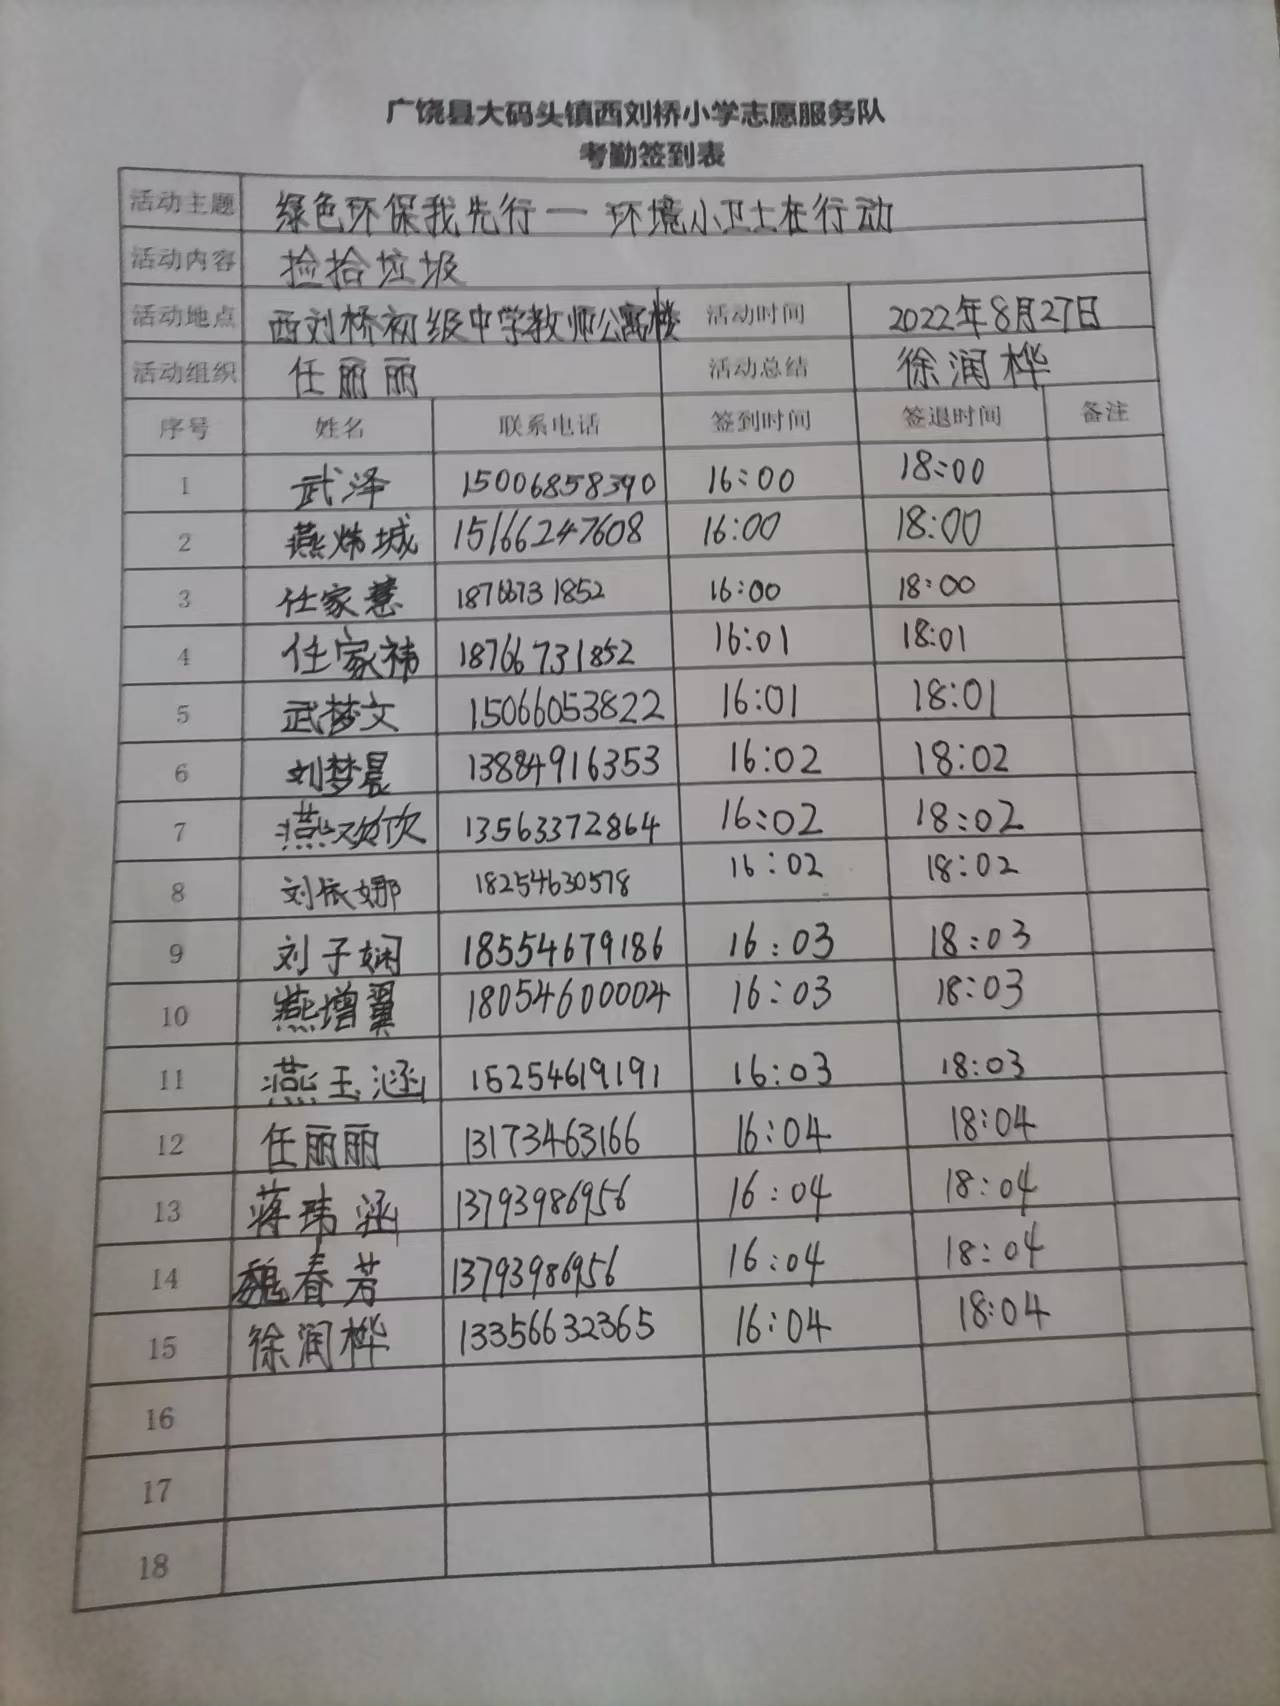 广饶县大码头镇西刘桥小学志愿服务队
考勤签到表
活动主题 绿色环保我先行一 环境小卫士在行动
活动内容 捡拾垃圾
活动地点 西刘桥初级中学教师公寓楼 活动时间 2022年8月27日
活动组织 任丽丽 活动总结 徐润桦
序号 姓名 联系电话 签到时间 签退时间 备注
1 武泽 15006858390 16:00 18:00
2 燕炜城 15166247608 16:00 18:00
3 任家慧 18766731852 16:00 18:00
4 任家祎 18766731852 16:01 18:01
5 武梦文 15066053822 16:01 18:01
6 刘梦晨 13884916353 16:02 18:02
7 燕欢饮 13563372864 16:02 18:02
8 刘依娜 18254630578 16:02 18:02
9 刘子娴 18554679186 16:03 18:03
10 燕增翼 18054600004 16:03 18:03
11 燕玉涵 15254619191 16:03 18:03
12 任丽丽 13173463166 16:04 18:04
13 蒋玮涵 13793986956 16:04 18:04
14 魏春芳 13793986956 16:04 18:04
15 徐润桦 13356632365 16:04 18:04
16
17
18